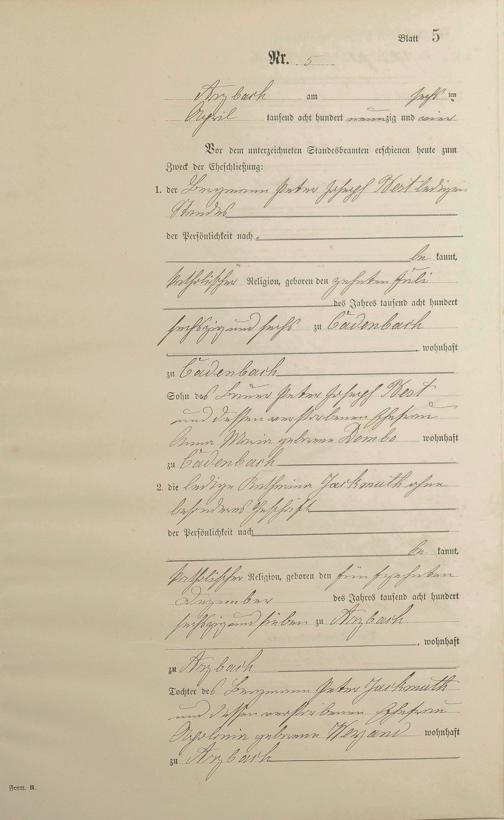 Blatt 5
Nr. 5
Arzbach am sechsten
April tausend acht hundert neunzig und vier
Vor dem unterzeichneten Standesbeamten erschienen heute zum
Zweck der Eheschließung:
1. der Bergmann Peter Joseph ledigen
Standes
der Persönlichkeit nach
be kannt,
katholischer Religion, geboren den zehnten Juli
des Jahres tausend acht hundert
sechszig und sechs zu Cadenbach
, wohnhaft
zu Cadenbach
Sohn des Bauer Peter Joseph
und dessen verstorbenen Ehefrau
Anna Maria geborene wohnhaft
zu Cadenbach
2. die ledige Katharina Jackmuth ohne
besonderes Geschäft
der Persönlichkeit nach
be kannt,
katholischer Religion, geboren den fünfzehnten
Dezember des Jahres tausend acht hundert
sechszig und sieben zu Arzbach
, wohnhaft
zu Arzbach
Tochter des Bergmann Peter Jackmuth
und dessen verstorbenen Ehefrau
Apolonia geborene Weyand wohnhaft
zu Arzbach
Form. B.